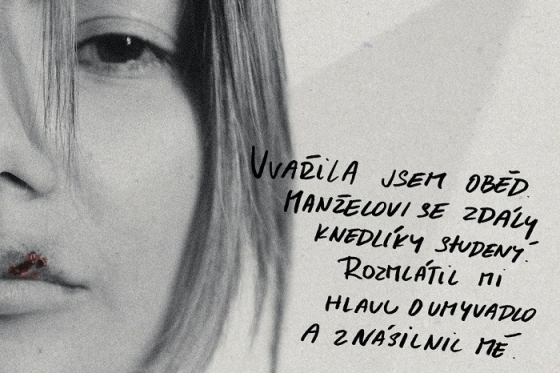 UVAŘILA JSEM OBĚD.
MANŽELOVI SE ZDÁLY
KNEDLÍKY STUDENÝ.
ROZMLÁTIL MI
HLAVU O UMYVADLO
A ZNÁSILNIL MĚ.